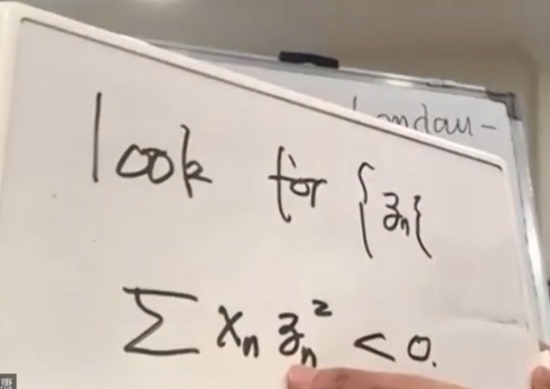 Landau-
look for {zₙ}
∑ xₙ zₙ² < 0.
唐